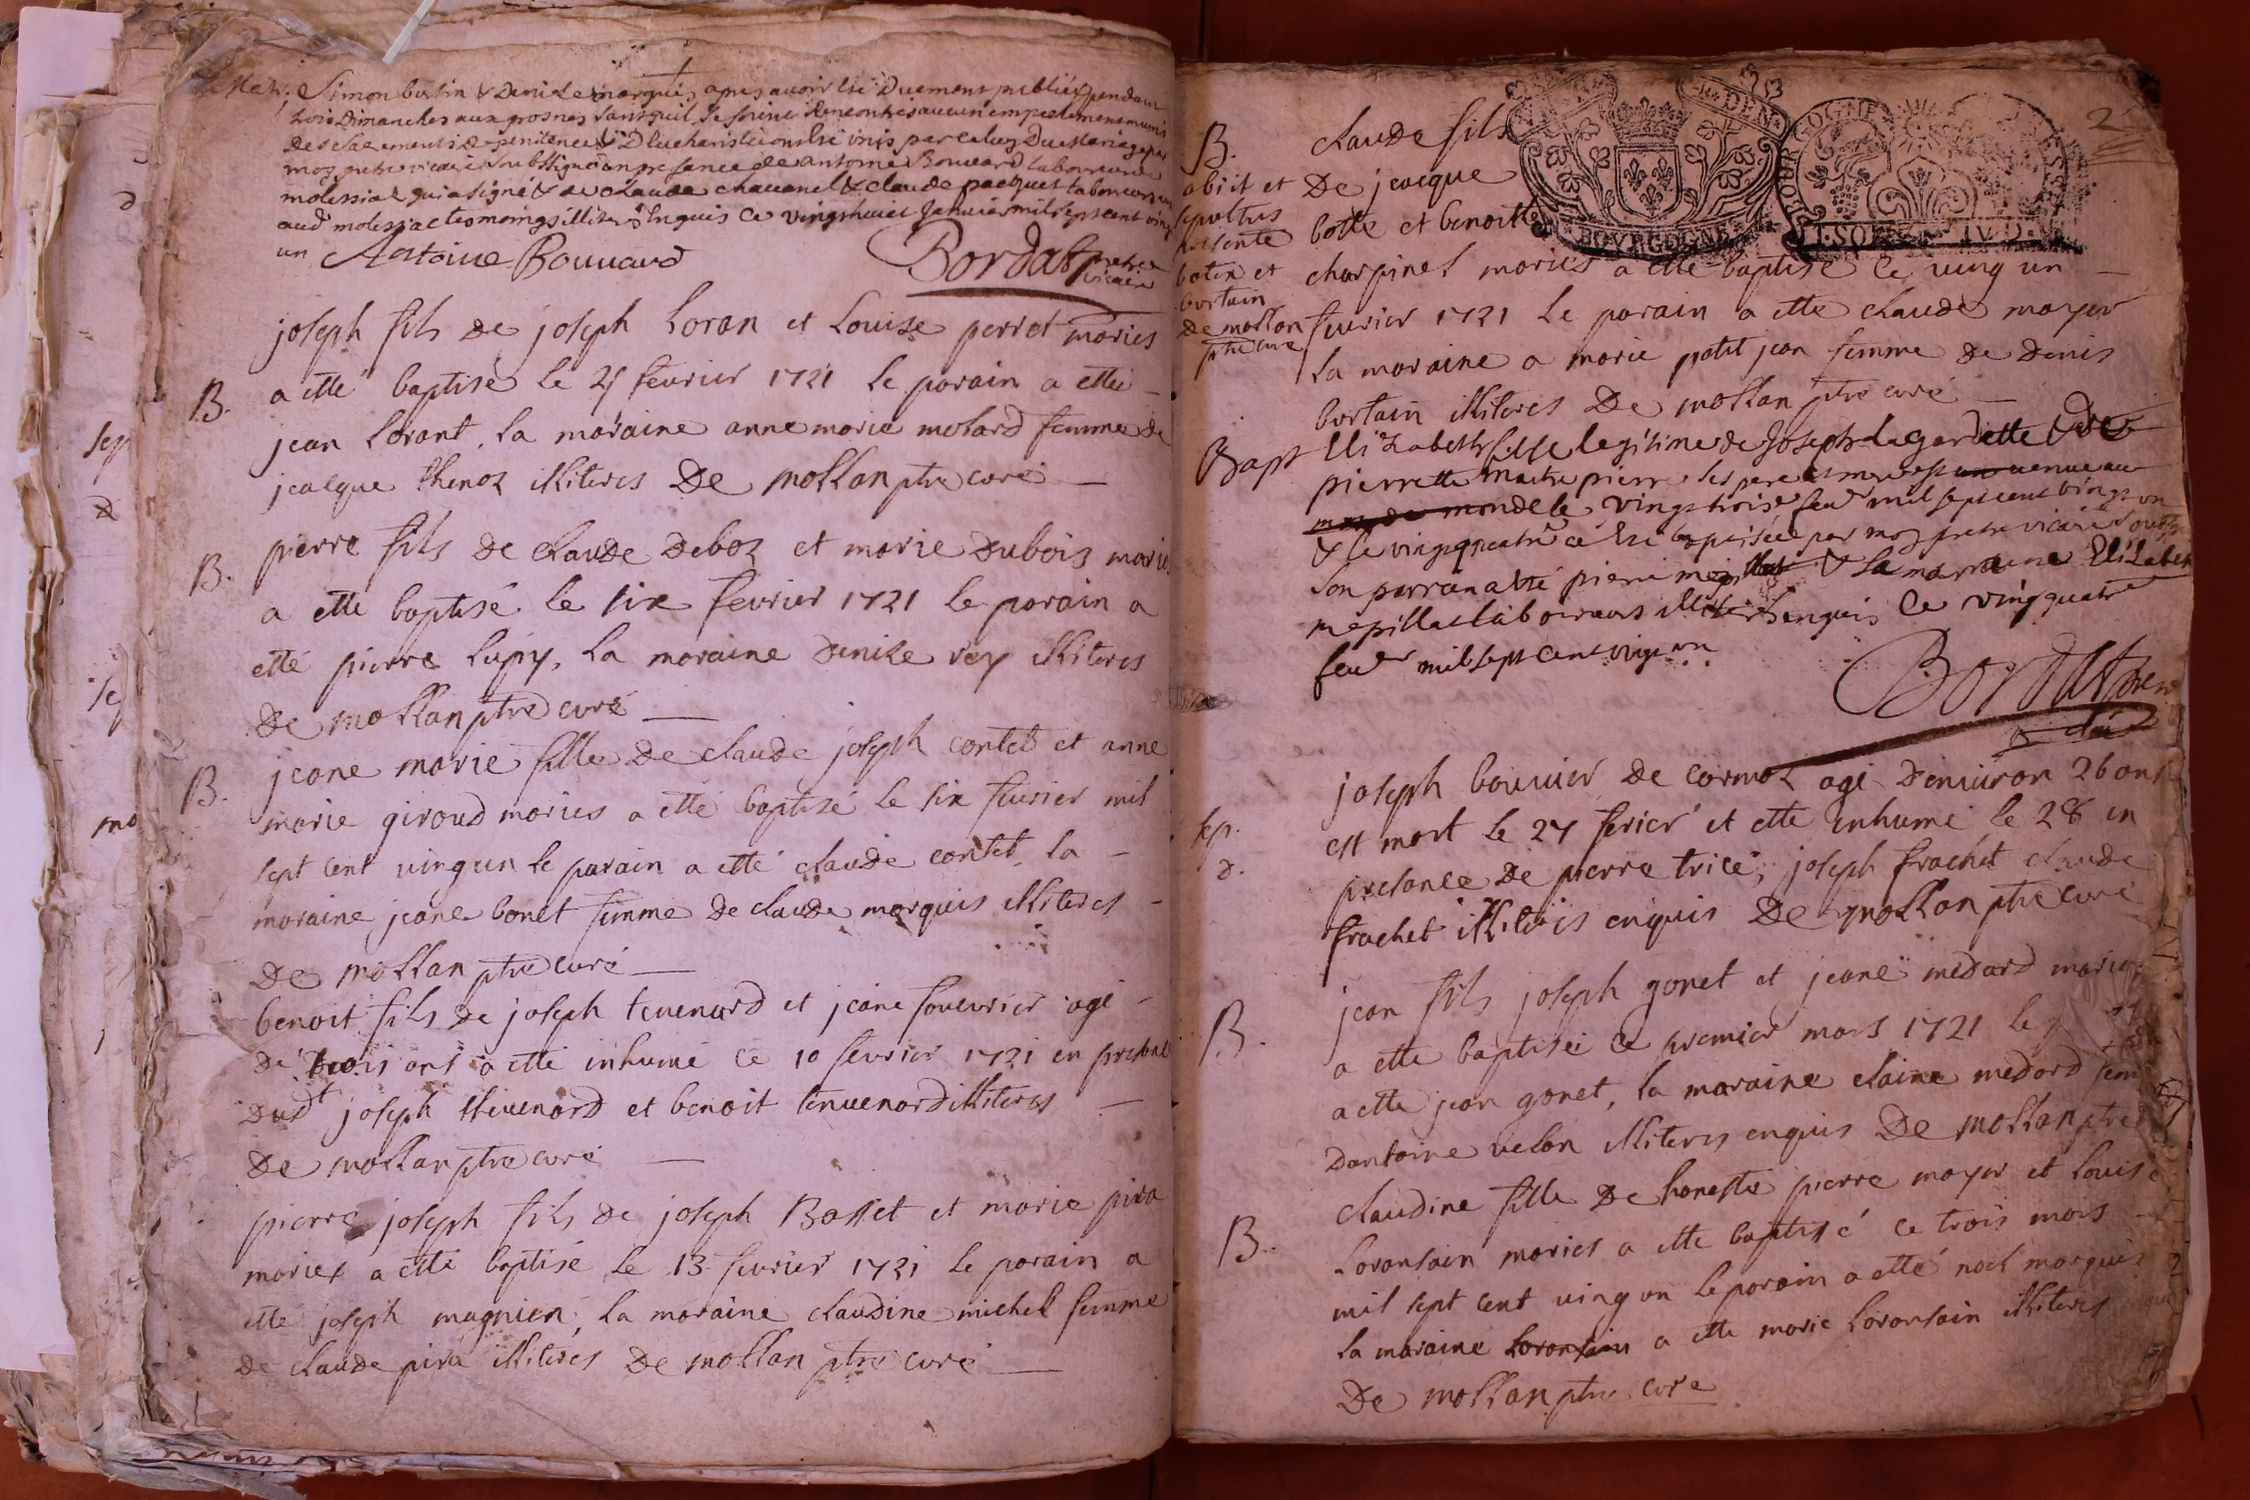 Mar. Simon bertin & Denise marquis apres avoir ete Duement publiés pendant
trois Dimanches aux prosnes sans quil se soit rencontré aucun empeschement munis
des sacrements de penitence & D leucharistie ont été unis par celuy Du mariage par
moy pretre vicaire soubssigné en presence de antoine Bouuard laboureur
molissiat qui a signé & de claude chauanel & claude paequet laboureurs
aud molissiat tesmoings illiteres Enquis ce vingthuict Januier mil sept cent vingt
un Antoine Bouuard Bordat pretre
vicaire
joseph fils de joseph Loran et Louise perret maries
B. a etté baptisé le 2 fevrier 1721 le parain a etté
jean Lorant, la maraine anne marie molard femme de
jacque thenoz illiteres De mollan ptre curé
B. pierre fils de claude Deboz et marie Dubois maries
a etté baptisé le six fevrier 1721 le parain a
etté pierre Lupy, la maraine Denise rey illiteres
De mollan ptre curé
B. jeane marie fille De claude joseph contet et anne
marie giroud maries a etté baptisé le six feurier mil
sept cent vingun le parain a etté claude contet, la
maraine, jeane bonet femme De claude marquis illiteres
De mollan ptre curé
benoit fils De joseph teuenard et jeane feueurier agé
De trois ans a etté inhumé ce 10 feurier 1721 en presance
Dudt joseph theuenard et benoit tenuenard illiteres
De mollan ptre curé
pierre joseph fils de joseph Basset et marie pira
maries a etté baptisé le 13 feurier 1721 le parain a
etté joseph magnien, la maraine claudine michel femme
De claude pira illiteres De mollan ptre curé
2
B. claude fils
obiit et De jacque
sepultus
presente botte et benoitte
botte et charpinel maries a etté baptisé le ving un
bertain
De mollan feurier 1721 le parain a etté claude mayer
ptre curé
la maraine a marie petit jean femme De Denis
bertain illiteres De mollan ptre curé
Bapt Elizabeth fille legitime de Joseph Lagardette & de
pierrette maitre pierre ses pere et mere est venue au
monde le vingt trois feur mil sept cent vingt un
& le vingt quatre a été baptisée par moy pretre vicaire soubsg
son parrain a eté pierre mepillat & la marraine Elizabeth
mepillat laboureurs illiteres enquis ce vingt quatre
feur mil sept cent vingt un
Bordat pretre
vicaire
joseph bouuier De cormoz agé Denuiron 26 ans
sep. est mort le 27 ferier et etté inhumé le 28 en
D. presance De pierre trice, joseph frachet claude
frachet illiteres enquis De mollan ptre curé
jean fils joseph gonet et jeane medard maries
B. a etté baptisé ce premier mars 1721 le p
a etté jean gonet, la maraine claine medard fem
Dantoine uelon illiteres enquis De mollan ptre
claudine fille De honeste pierre mayer et Louise
B. Loransain maries a etté baptisé ce trois mars
mil sept cent ving un le parain a etté noel marquis
la maraine Loransain a etté marie Loransain illiteres
De mollan ptre curé
BOURGOGNE